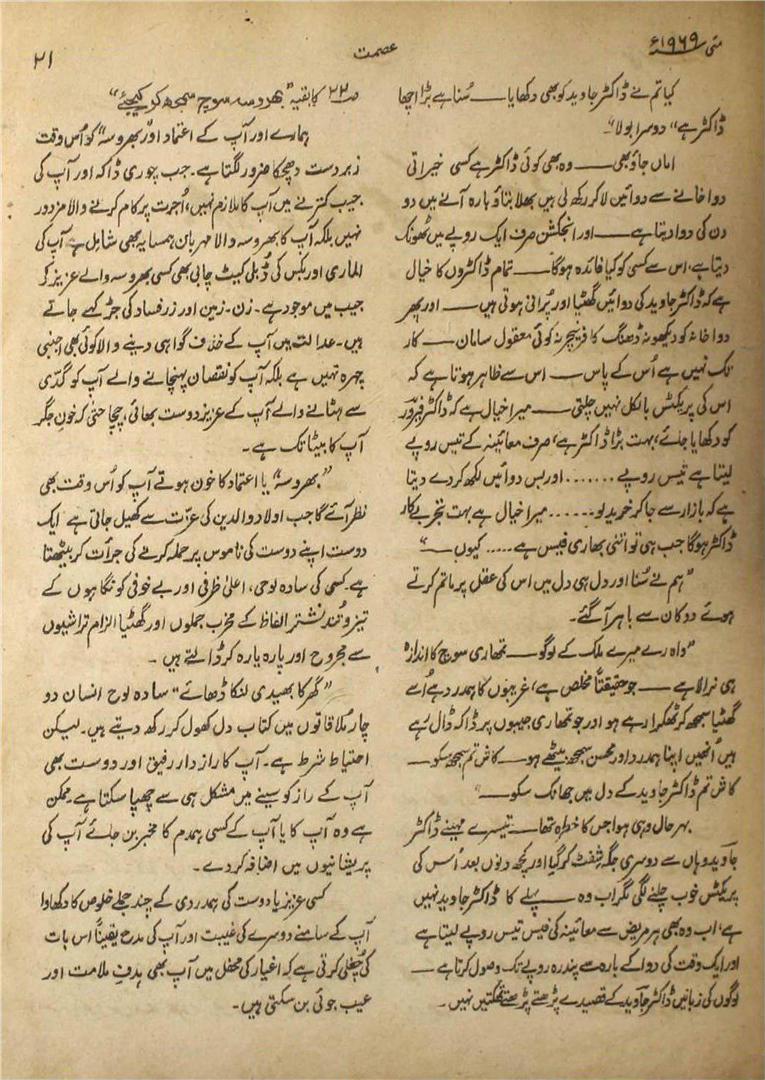 مئی ۱۹۶۹ء
عصمت
۲۱
کیا تم نے ڈاکٹر جاوید کو بھی دکھایا ــــ سُنا ہے بڑا اچھا
ڈاکٹر ہے" دوسرا بولا"۔
اماں جاؤ بھی ــــ وہ بھی کوئی ڈاکٹر ہے کسی خیراتی
دوا خانے سے دوائیں لا کر رکھ لی ہیں بھلا بتاؤ بارہ آنے میں دو
دن کی دوا دیتا ہے ــــ اور انجکشن صرف ایک روپے میں ٹھونک
دیتا ہے، اس سے کسی کو کیا فائدہ ہوگا ــــ تمام ڈاکٹروں کا خیال
ہے کہ ڈاکٹر جاوید کی دوائیں گھٹیا اور پُرانی ہوتی ہیں ــــ اور پھر
دوا خانہ کو دیکھو نہ ڈھنگ کا فرنیچر نہ کوئی معقول سامان ــــ کار
تک نہیں ہے اُس کے پاس ــــ اس سے ظاہر ہوتا ہے کہ
اس کی پریکٹس بالکل نہیں چلتی ــــ میرا خیال ہے کہ ڈاکٹر فیروز
کو دکھایا جائے، بہت بڑا ڈاکٹر ہے، صرف معائینہ کے تیس روپے
لیتا ہے تیس روپے ....... اور بس دوائیں لکھ کر دے دیتا
ہے کہ بازار سے جا کر خرید لو ...... میرا خیال ہے بہت تجربے کار
ڈاکٹر ہوگا جب ہی تو اتنی بھاری فیس ہے ..... کیوں ــــ"
"ہم نے سُنا اور دل ہی دل میں اس کی عقل پر ماتم کرتے
ہوئے دوکان سے باہر آ گئے۔
"واہ رے میرے ملک کے لوگو ــــ تمھاری سوچ کا انداز
ہی نرالا ہے ــــ جو حقیقتاً مخلص ہے، غریبوں کا ہمدرد ہے اُسے
گھٹیا سمجھ کر ٹھکرا رہے ہو اور جو تمھاری جیبوں پر ڈاکہ ڈال رہے
ہیں اُنھیں اپنا ہمدرد اور محسن سمجھ بیٹھے ہو ــــ کاش تم سمجھ سکو ــــ
کاش تم ڈاکٹر جاوید کے دل میں جھانک سکو ــــ"
بہر حال وہی ہوا جس کا خطرہ تھا ــــ تیسرے مہینے ڈاکٹر
جاوید وہاں سے دوسری جگہ شفٹ کر گیا اور کچھ دنوں بعد اُس کی
پریکٹس خوب چلنے لگی مگر اب وہ ــــ پہلے کا ڈاکٹر جاوید نہیں
ہے، اب وہ بھی ہر مریض سے معائینہ کی فیس تیس روپے لیتا ہے
اور ایک وقت کی دوا کے بارہ سے پندرہ روپے تک وصول کرتا ہے ــــ
لوگوں کی زبانیں ڈاکٹر جاوید کے قصیدے پڑھتے پڑھتے تھکتیں نہیں۔
صـ ۲۲ کا بقیہ "بھروسہ سوچ سمجھ کر کیجئے"
ہمارے اور آپ کے اعتماد اور "بھروسہ" کو اُس وقت
زبردست دھچکا ضرور لگتا ہے۔ جب چوری ڈاکہ اور آپ کی
جیب کترنے میں آپ کا ملازم نہیں، اُجرت پر کام کرنے والا مزدور
نہیں بلکہ آپ کا بھروسہ والا مہربان ہمسایہ بھی شامل ہے آپ کی
الماری اور بکس کی ڈبلی کیٹ چابی بھی کسی بھروسہ والے عزیز کی
جیب میں موجود ہے۔ زن۔ زمین اور زر فساد کی جڑ کہے جاتے
ہیں۔ عدالت میں آپ کے خلاف گواہی دینے والا کوئی بھی اجنبی
چہرہ نہیں ہے بلکہ آپ کو نقصان پہنچانے والے آپ کو گدّی
سے ہٹانے والے آپ کے عزیز دوست بھائی، چچا حتیٰ کہ خونِ جگر
آپ کا بیٹا تک ہے۔
"بھروسہ" یا اعتماد کا خون ہوتے آپ کو اُس وقت بھی
نظر آئے گا جب اولاد والدین کی عزّت سے کھیل جاتی ہے ایک
دوست اپنے دوست کی ناموس پر حملہ کرنے کی جرأت کر بیٹھتا
ہے۔ کسی کی سادہ لوحی، اعلیٰ ظرفی اور بے خوفی کو نگاہوں کے
تیز و تُند نشتر الفاظ کے مخرب جملوں اور گھٹیا الزام تراشیوں
سے مجروح اور پارہ پارہ کر ڈالتے ہیں ۔
"گھر کا بھیدی لنکا ڈھائے" سادہ لوح انسان دو
چار مُلاقاتوں میں کتاب دل کھول کر رکھ دیتے ہیں۔ لیکن
احتیاط شرط ہے۔ آپ کا راز دار رفیق اور دوست بھی
آپ کے راز کو سینے میں مشکل ہی سے چھپا سکتا ہے۔ ممکن
ہے وہ آپ کا یا آپ کے کسی ہمدم کا مخبر بن جائے آپ کی
پریشانیوں میں اضافہ کر دے۔
کسی عزیز یا دوست کی ہمدردی کے چند جملے خلوص کا دکھاوا
آپ کے سامنے دوسرے کی غیبت اور آپ کی مدح یقیناً اس بات
کی چُغلی کرتی ہے کہ اغیار کی محفل میں آپ بھی ہدفِ ملامت اور
عیب جوئی بن سکتی ہیں۔